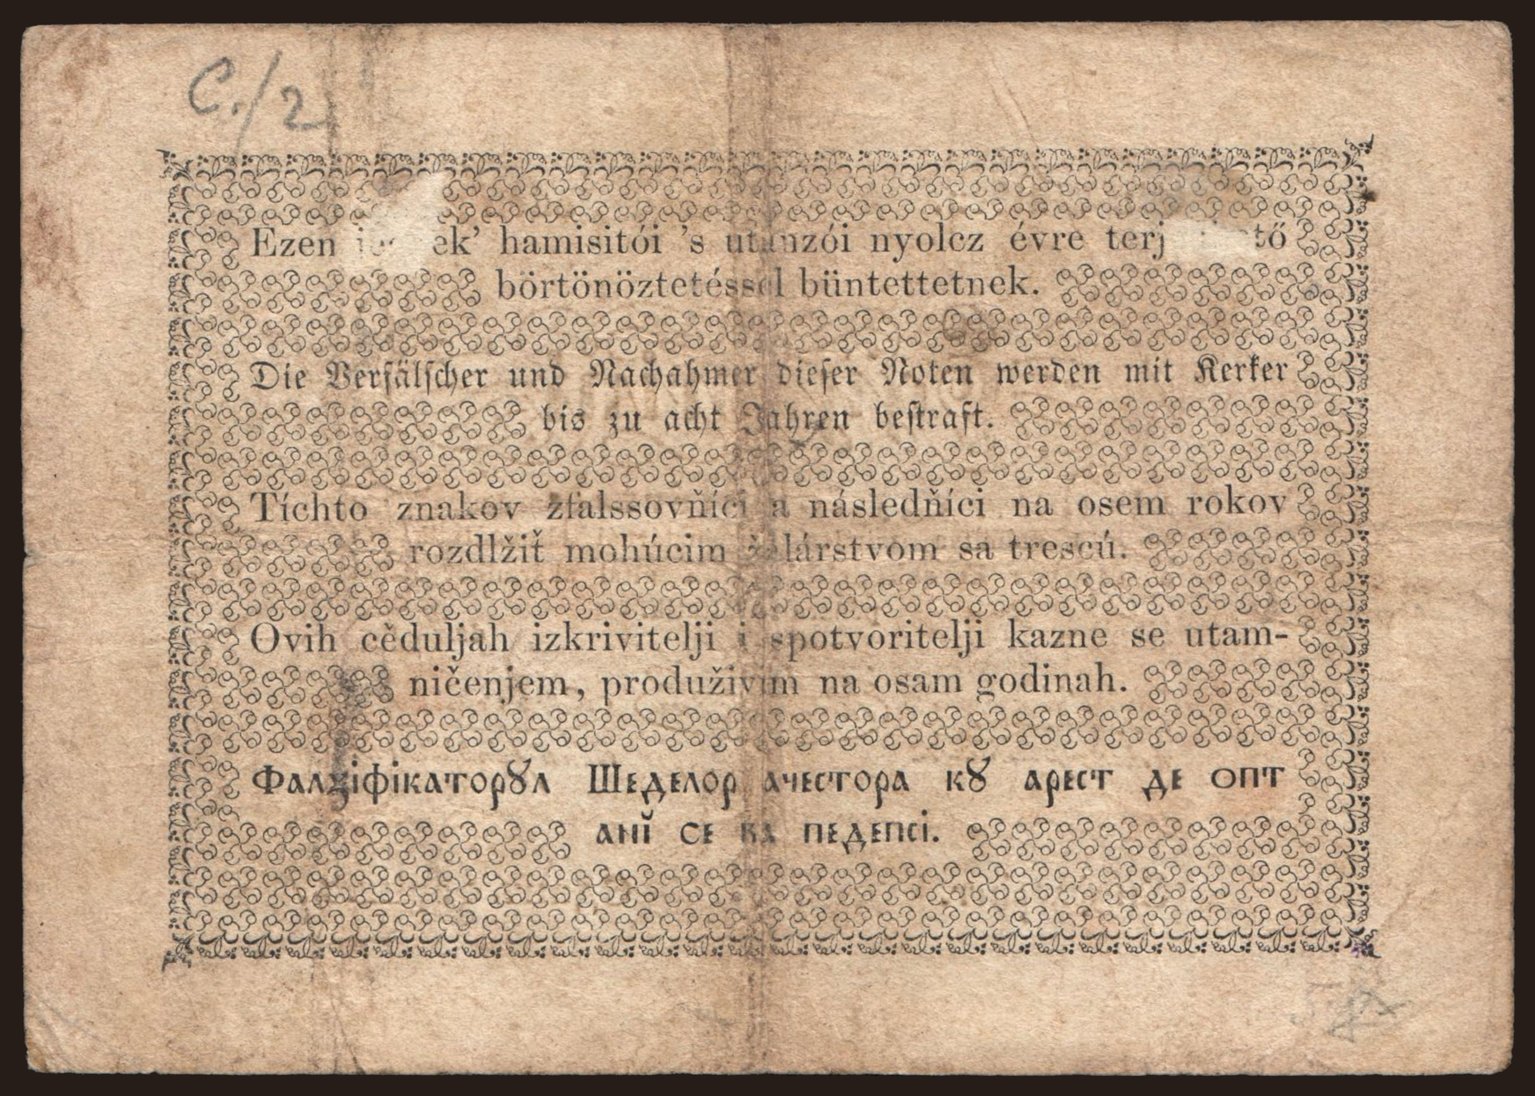 C./2
Ezen hamisitói 's utánzói nyolcz évre
börtönöztetéssel büntettetnek.
Die Verfälscher und Nachahmer dieser Noten werden mit Kerker
bis zu acht Jahren bestraft.
Tíchto znakov zfalssovňíci a následňíci na osem rokov
rozdlžiť mohúcim žalárstvom sa trescú.
Ovih cěduljah izkrivitelji i spotvoritelji kazne se utam-
ničenjem, produživim na osam godinah.
Фалціфікаторꙋл Шеделор ачестора кꙋ арест де опт
анї се ва педепсі.